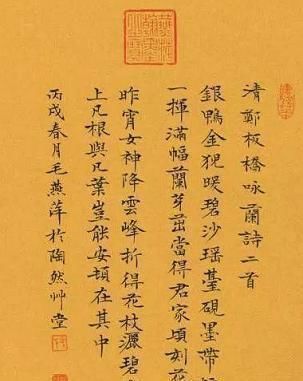 清鄭板橋咏蘭詩二首
銀鴨金猊暖碧沙瑶臺硯墨帶
一揮滿幅蘭芽茁當得君家頃刻花
昨宵女神降雲峰折得花枝灑碧
上凡根與凡葉豈能安頓在其中
丙戌春月毛燕萍於陶然艸堂